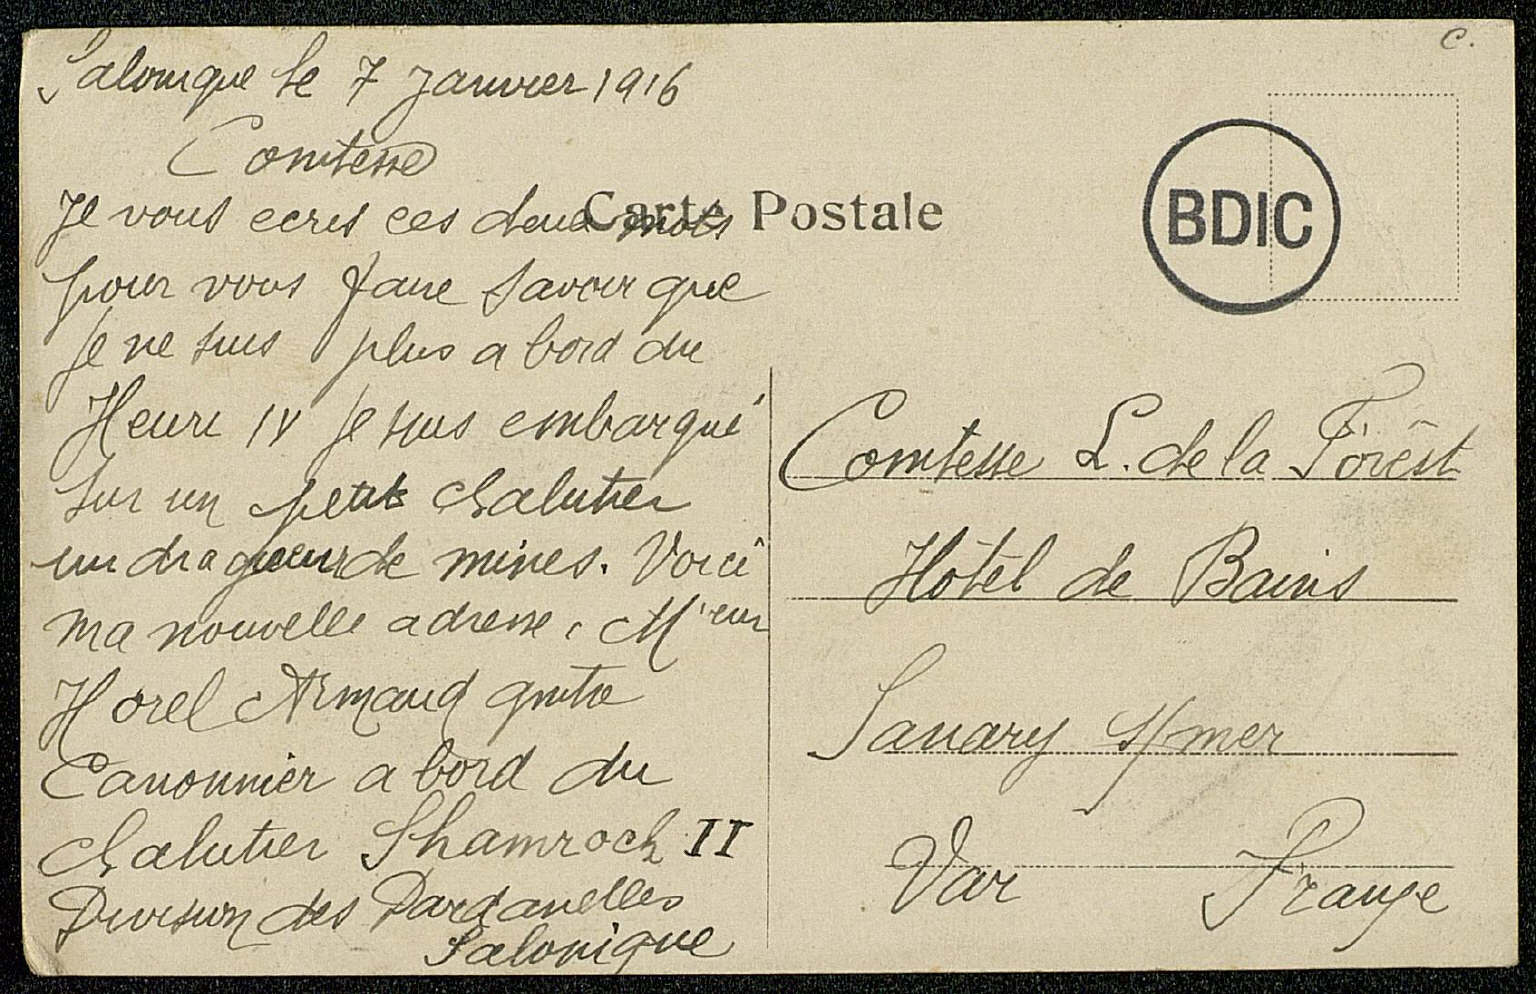 c.
Salonique le 7 Janvier 1916
Comtesse
Carte Postale
BDIC
Je vous ecris ces deux mots
pour vous faire savoir que
je ne suis plus a bord du
Henri IV je suis embarqué
sur un petit chalutier
un dragueur de mines. Voici
ma nouvelle adresse, M'eur
Horel Armand
Canonnier a bord du
chalutier Shamroch II
Division des Dardanelles
Salonique
Comtesse L. de la Forêst
Hôtel de Bains
Sanary s/mer
Var France